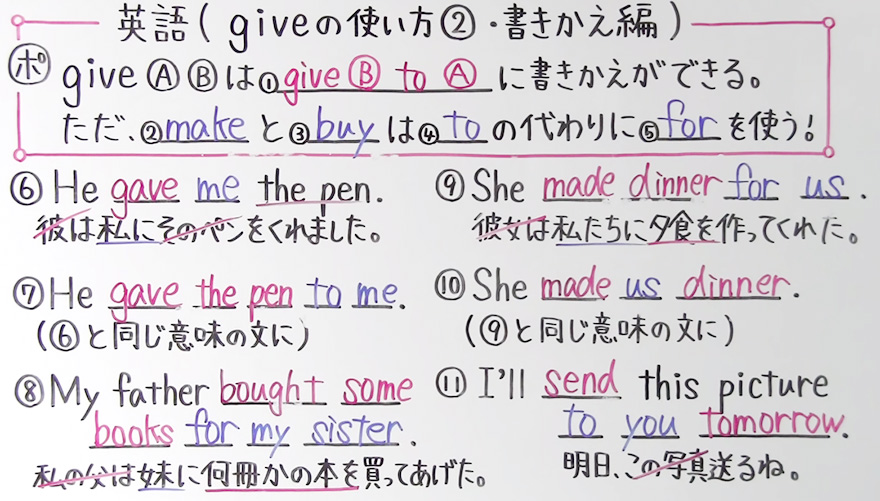 英語(giveの使い方②・書きかえ編)
ポ give Ⓐ Ⓑ は①give Ⓑ to Ⓐ に書きかえができる。
ただ、②make と③buy は④to の代わりに⑤for を使う!
⑥ He gave me the pen.
彼は私にそのペンをくれました。
⑦ He gave the pen to me.
(⑥と同じ意味の文に)
⑧ My father bought some
books for my sister.
私の父は妹に何冊かの本を買ってあげた。
⑨ She made dinner for us.
彼女は私たちに夕食を作ってくれた。
⑩ She made us dinner.
(⑨と同じ意味の文に)
⑪ I'll send this picture
to you tomorrow.
明日、この写真送るね。